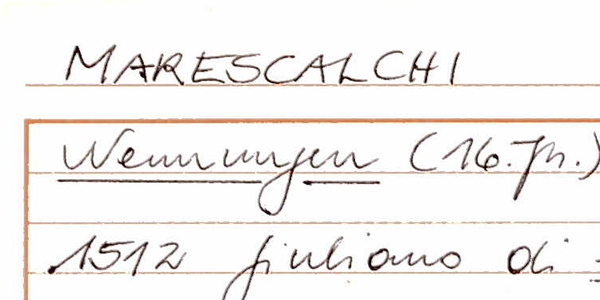 MARESCALCHI
Nennungen (16. Jh.)
1512 Giuliano di